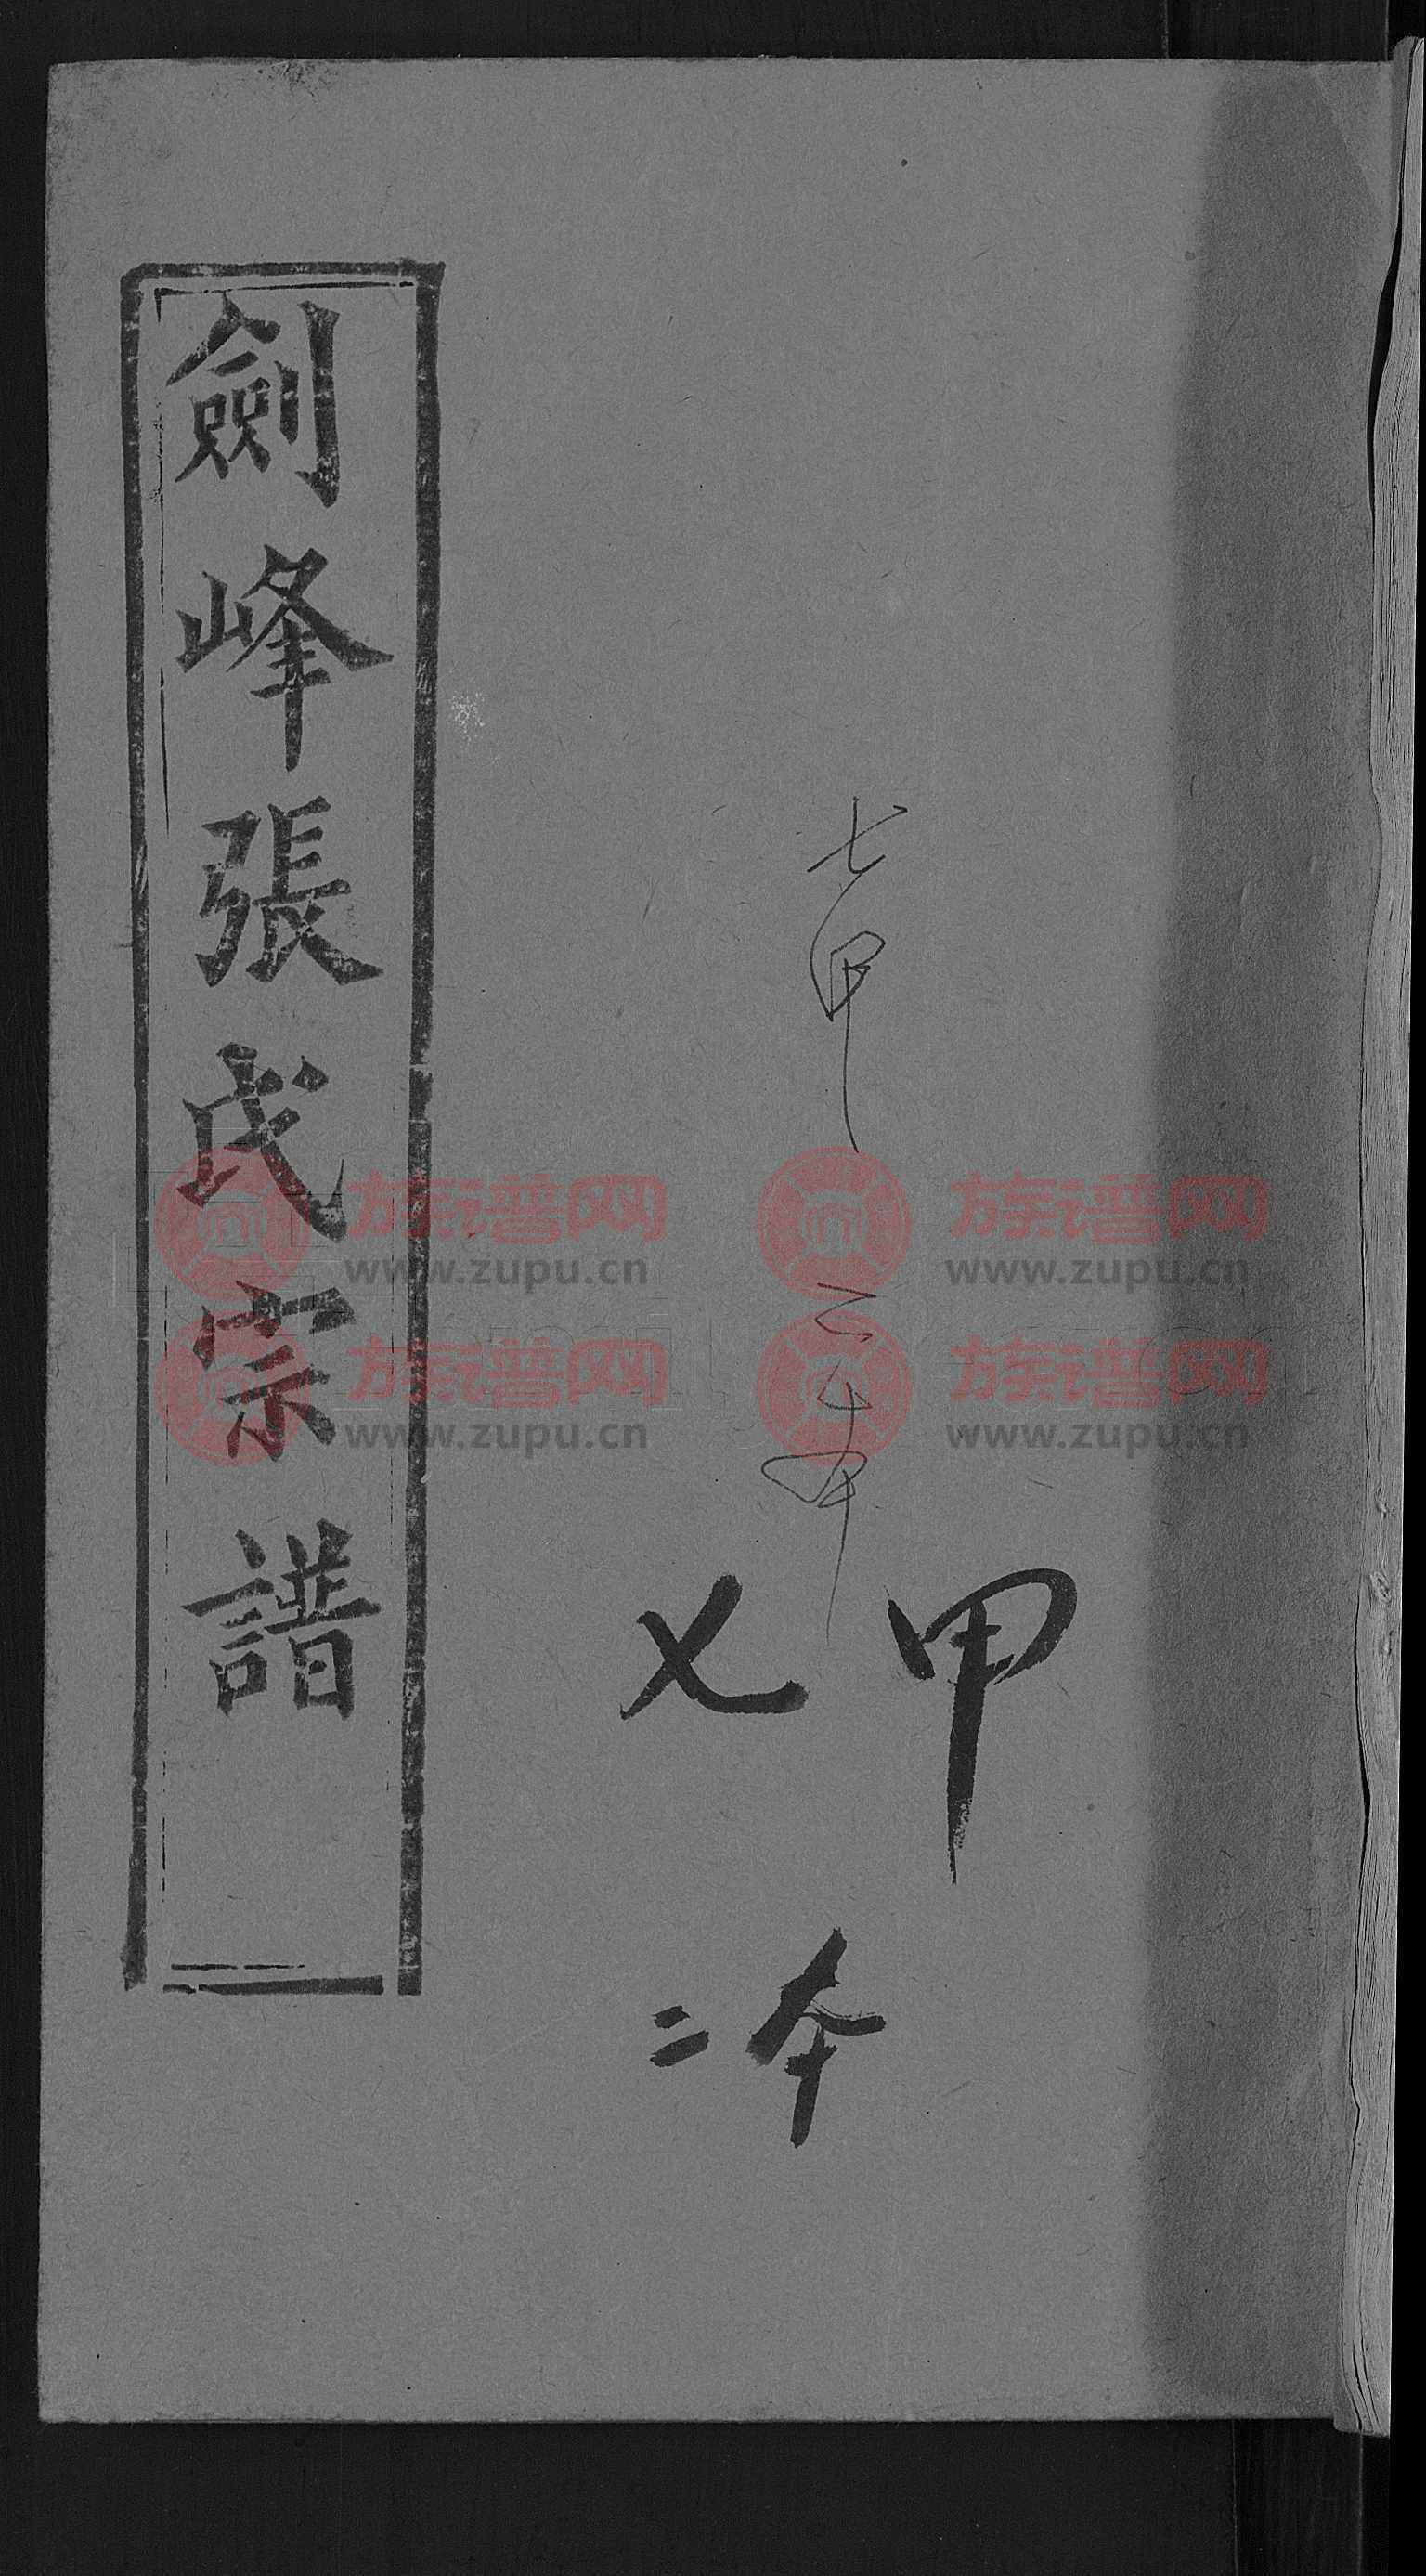 劍峰張氏宗譜
七甲
二本
甲
七
本
二
族谱网
www.zupu.cn
族谱网
www.zupu.cn
族谱网
www.zupu.cn
族谱网
www.zupu.cn